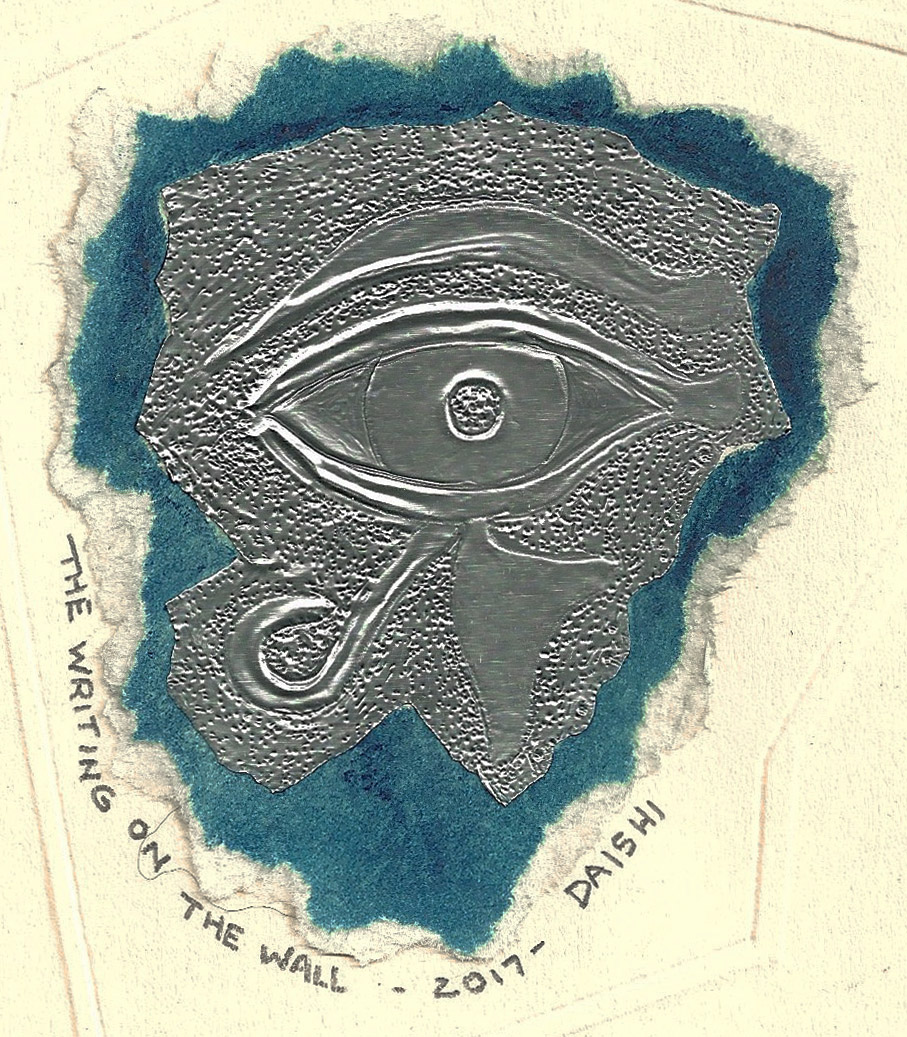 THE WRITING ON THE WALL - 2017- DAISHI